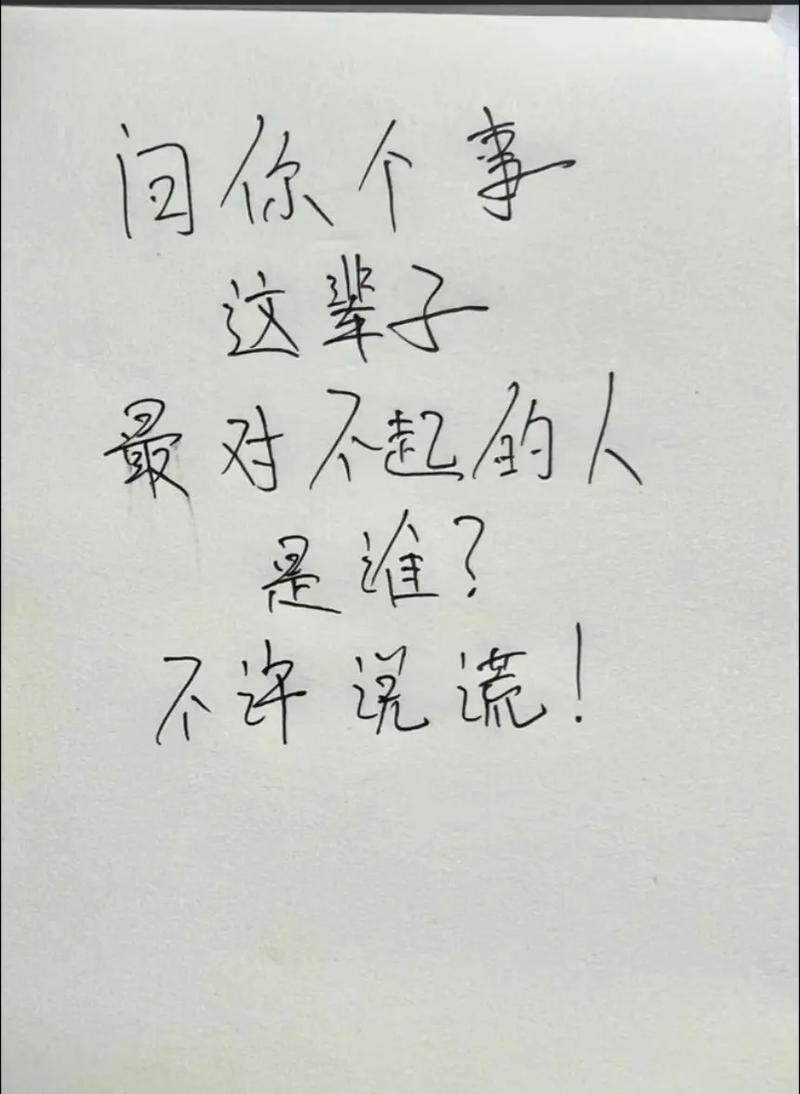 问你个事
这辈子
最对不起的人
是谁?
不许说谎!